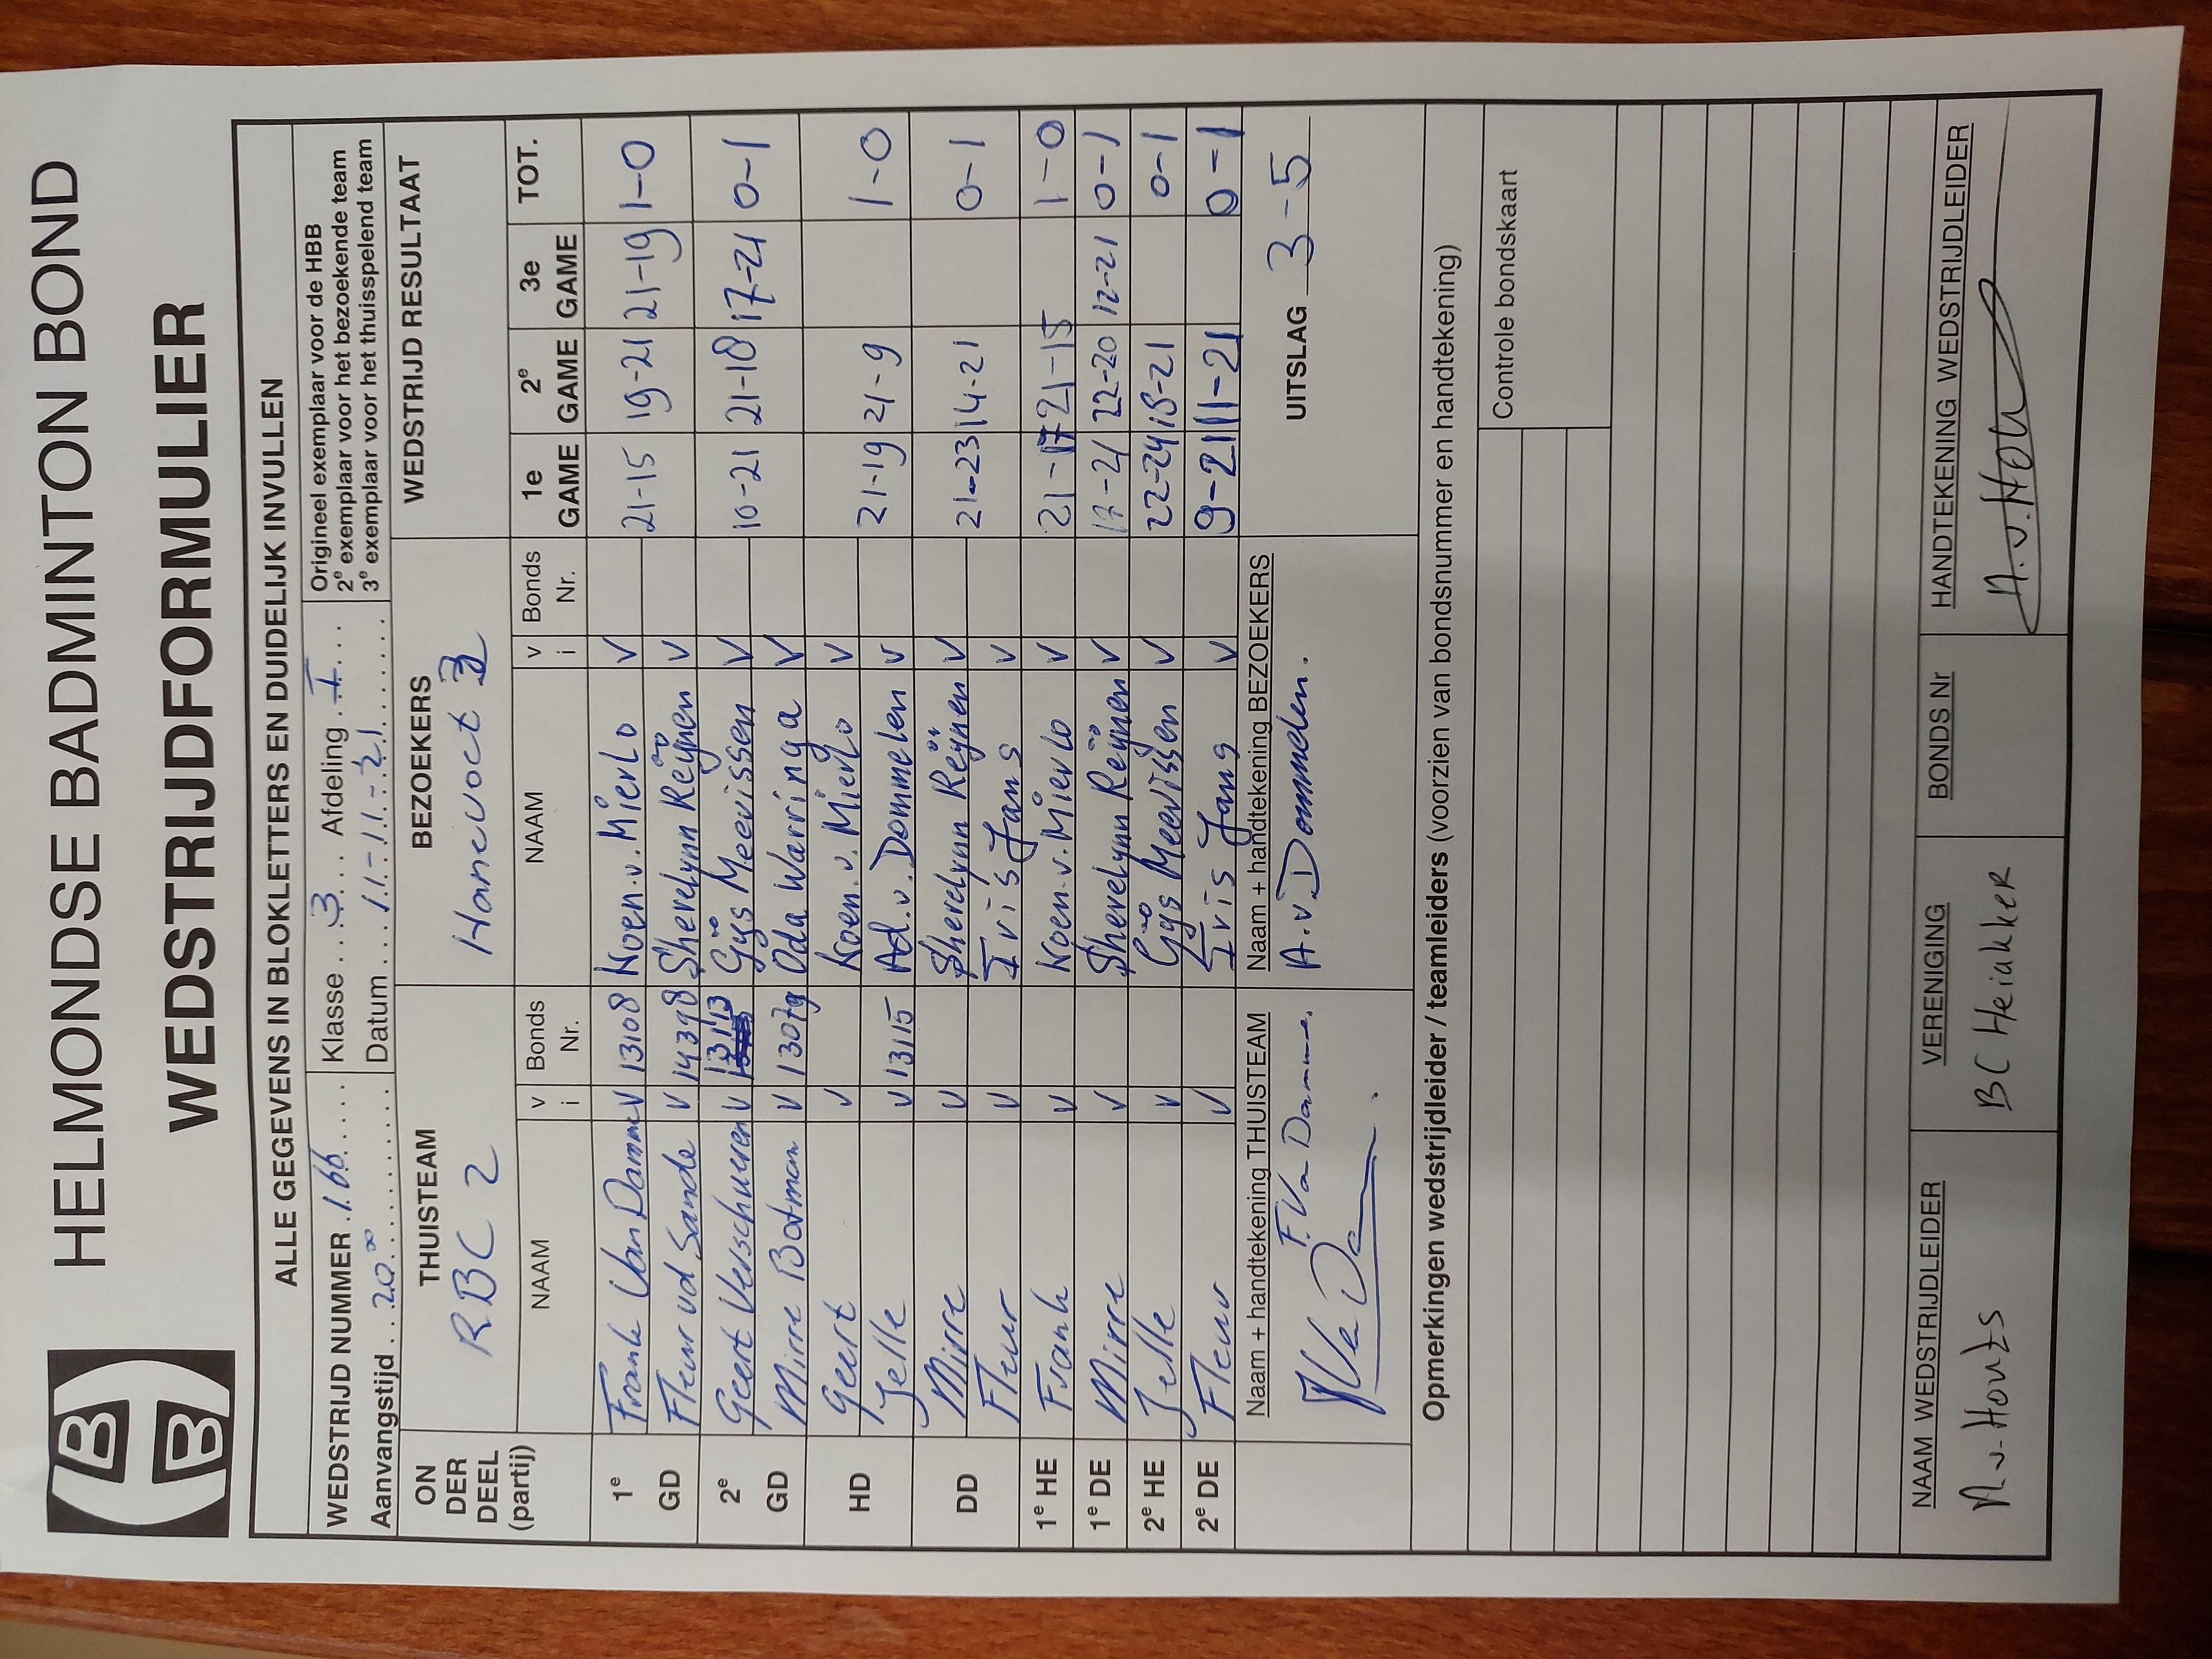 HBB
HELMONDSE BADMINTON BOND
WEDSTRIJDFORMULIER
ALLE GEGEVENS IN BLOKLETTERS EN DUIDELIJK INVULLEN
WEDSTRIJD NUMMER .166..... Klasse ...3... Afdeling .I...
Aanvangstijd ..20.⁰⁰.......... Datum ....11-11-21........
Origineel exemplaar voor de HBB
2e exemplaar voor het bezoekende team
3e exemplaar voor het thuisspelend team
ON DER DEEL (partij) THUISTEAM BEZOEKERS WEDSTRIJD RESULTAAT
RBC 2 Hanevoet 3
NAAM v i Bonds Nr. NAAM v i Bonds Nr. 1e GAME 2e GAME 3e GAME TOT.
1e GD Frank Van Damme V 13108 Koen.v.Mierlo V 21-15 19-21 21-19 1-0
Fleur vd Sande V 14398 Sherelynn Reijnen V
2e GD Geert Verschuuren V 13113 Gijs Meevissen V 10-21 21-18 17-21 0-1
Mirre Botman V 13079 Oda Warringa V
HD Geert V Koen.v.Mierlo V 21-19 21-9 1-0
Jelle V 13115 Ad.v.Dommelen V
DD Mirre V Sherelynn Reijnen V 21-23 14-21 0-1
Fleur V Iris Jans V
1e HE Frank V Koen.v.Mierlo V 21-17 21-15 1-0
1e DE Mirre V Sherelynn Reijnen V 17-21 22-20 12-21 0-1
2e HE Jelle V Gijs Meevissen V 22-24 18-21 0-1
2e DE Fleur V Iris Jans V 9-21 11-21 0-1
Naam + handtekening THUISTEAM Naam + handtekening BEZOEKERS
F. Va Damme. A.v.Dommelen. UITSLAG 3-5
Opmerkingen wedstrijdleider / teamleiders (voorzien van bondsnummer en handtekening)
Controle bondskaart
NAAM WEDSTRIJDLEIDER VERENIGING BONDS Nr HANDTEKENING WEDSTRIJDLEIDER
A.v.Houts BC Heiakker A.v.Hou